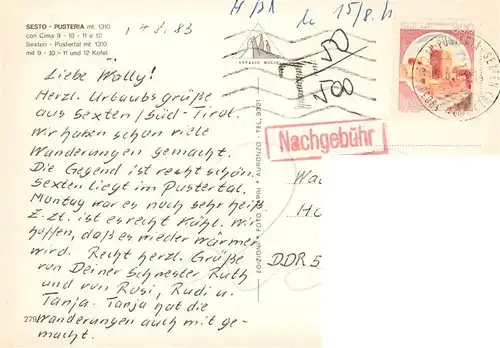 SESTO - PUSTERIA mt. 1310
con Cima 9 - 10 - 11 e 12
Sexten - Pustertal mt. 1310
mit 9 - 10 - 11 und 12 Kofel
14.8.83
15/8.
T 50
500
Nachgebühr
Liebe Wally!
Herzl. Urlaubsgrüße
aus Sexten/Süd-Tirol.
Wir haben schon viele
Wanderungen gemacht.
Die Gegend ist recht schön.
Sexten liegt im Pustertal.
Montag war es noch sehr heiß.
Z. Zt. ist es recht kühl. Wir
hoffen, daß es wieder wärmer
wird. Recht herzl. Grüße
von Deiner Schwester Ruth
und von Rosi, Rudi u.
Tanja. Tanja hat die
Wanderungen auch mit ge-
macht.
279
EDIZIONI - FOTO GHEDINA - AURONZO - TEL. 9321
DDR 5